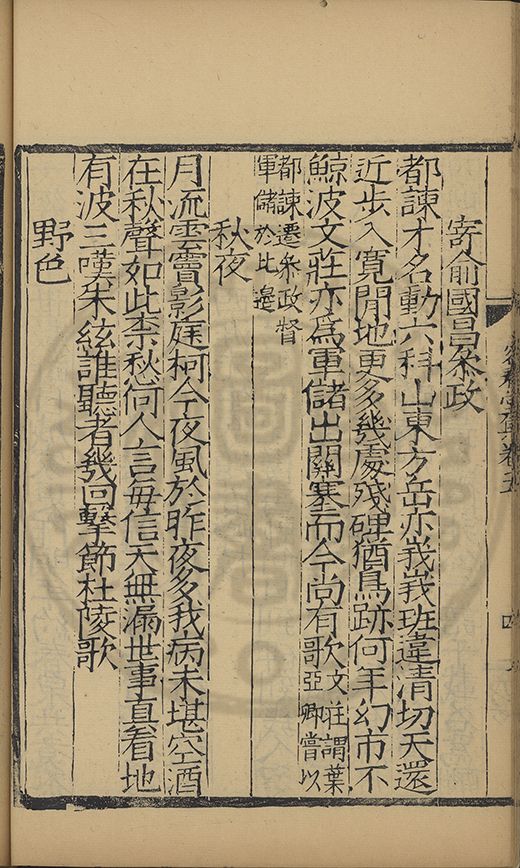 寄俞國昌叅政
都諫才名動六科山東方岳亦峩峩班違清切天還
近步入寬閒地更多幾處殘碑猶鳥跡何年幻市不
鯨波文莊亦爲軍儲出關塞而今尚有歌文莊謂葉亞卿嘗以
都諫遷叅政督軍儲於比邊
秋夜
月流雲竇影庭柯今夜風於昨夜多我病未堪空酒
在秋聲如此柰秋何人言每信天無漏世事直看地
有波三嘆朱絃誰聽者幾回擊節杜陵歌
野色